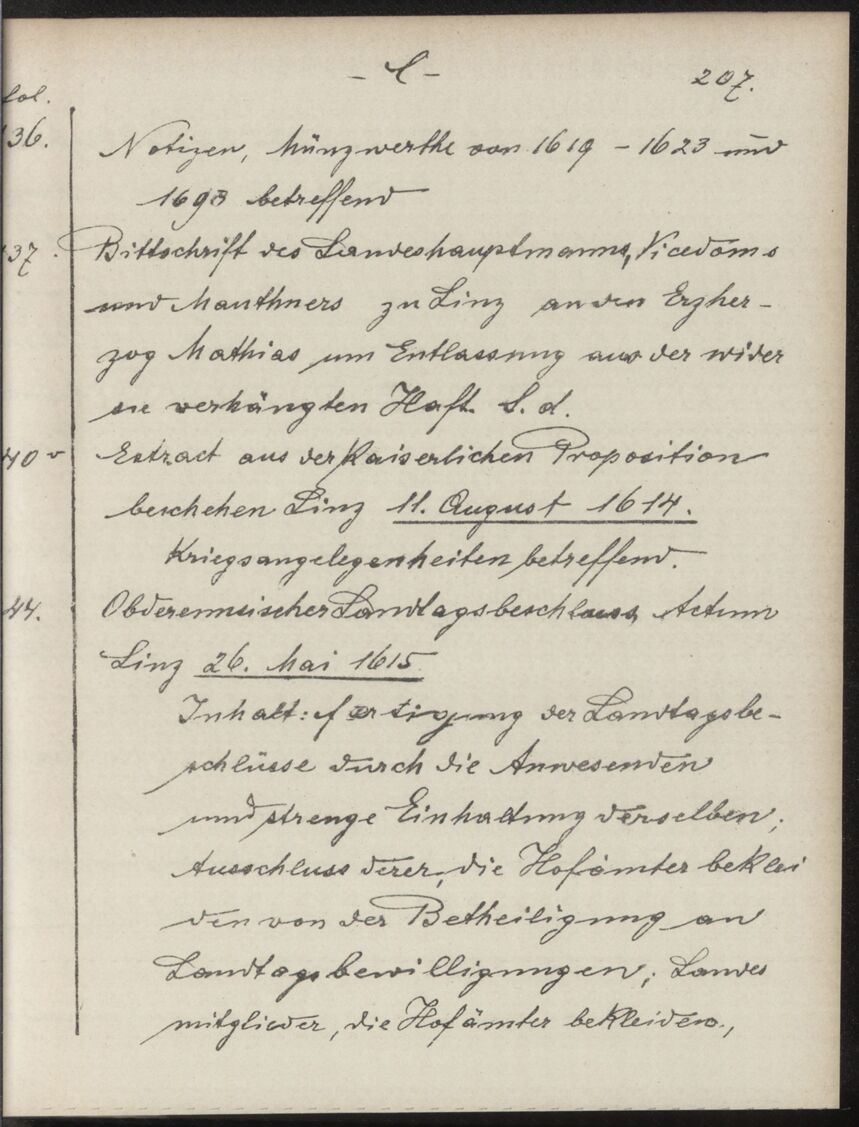 - L -
207.
fol.
136.
Notizen, Münzwerthe von 1619 - 1623 und
1693 betreffend
137.
Bittschrift des Landeshauptmanns, Vicedoms
und Mauthners zu Linz an den Erzher-
zog Mathias um Entlassung aus der wider
sie verhängten Haft. S. d.
140 v
Extract aus der Kaiserlichen Proposition
beschehen Linz 11. August 1614.
Kriegsangelegenheiten betreffend.
44.
Obderennsischer Landtagsbeschluss Actum
Linz 26. Mai 1615
Inhalt: fertigung der Landtagsbe-
schlüsse durch die Anwesenden
und strenge Einhaltung derselben;
Ausschluss derer, die Hofämter beklei
den von der Betheiligung an
Landtagsbewilligungen; Landes
mitglieder, die Hofämter bekleiden,